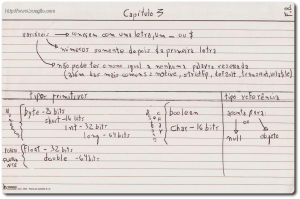 Capítulo 3
variáveis → começam com uma letra, um _ ou $
→ números somente depois da primeira letra
→ não pode ter o nome igual a nenhuma palavra reservada
(além das mais comuns: native, strictfp, default, transient, volatile)
tipos primitivos
tipo referência
byte - 8 bits
short - 16 bits
int - 32 bits
long - 64 bits
boolean
char - 16 bits
float - 32 bits
double - 64 bits
aponta para
null
ou
objeto